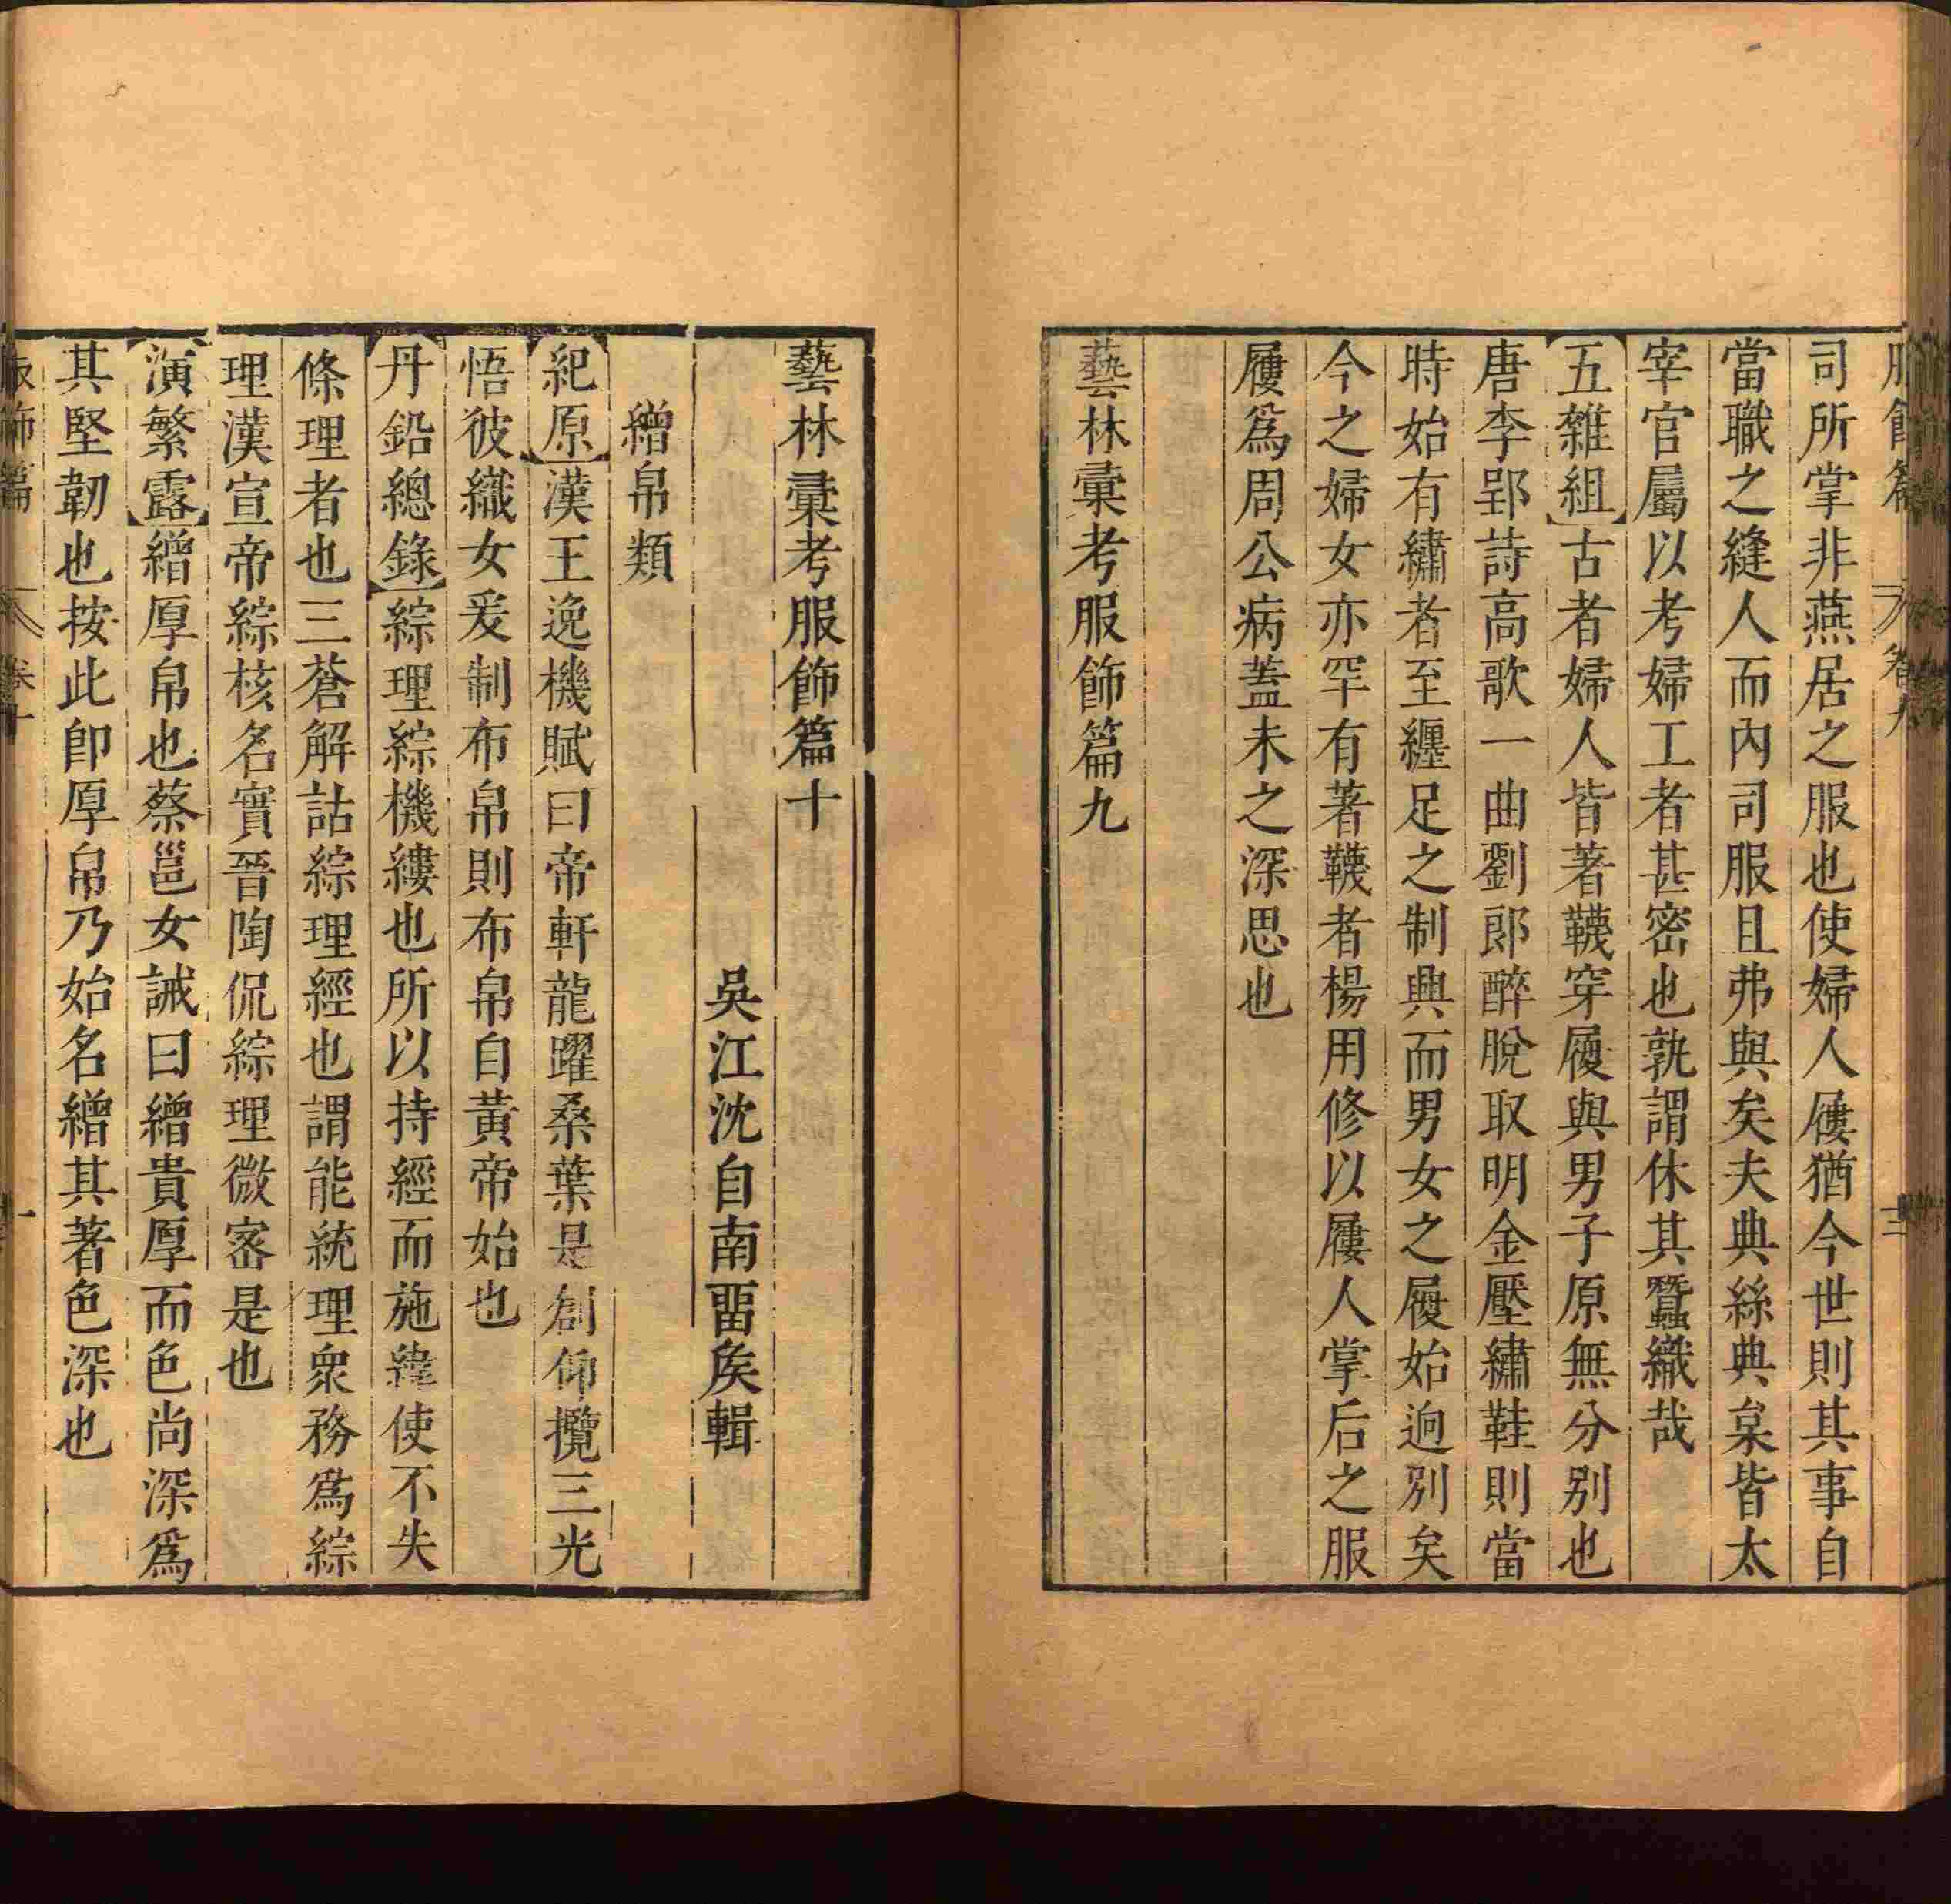 服飾篇 卷九 三
司所掌非燕居之服也使婦人屨猶今世則其事自
當職之縫人而內司服且弗與矣夫典絲典枲皆太
宰官屬以考婦工者甚密也孰謂休其蠶織哉
五雜組古者婦人皆著韈穿履與男子原無分別也
唐李郢詩高歌一曲劉郎醉脫取明金壓繡鞋則當
時始有繡者至纏足之制興而男女之履始迥別矣
今之婦女亦罕有著韈者楊用修以屨人掌后之服
屨爲周公病蓋未之深思也
藝林彙考服飾篇九
藝林彙考服飾篇十
吳江沈自南畱矦輯
繒帛類
紀原漢王逸機賦曰帝軒龍躍桑葉是創仰攬三光
悟彼織女爰制布帛則布帛自黃帝始也
丹鉛總錄綜理綜機縷也所以持經而施緯使不失
條理者也三蒼解詁綜理經也謂能統理衆務爲綜
理漢宣帝綜核名實晉陶侃綜理微宻是也
演繁露繒厚帛也蔡邕女誡曰繒貴厚而色尚深爲
其堅韌也按此卽厚帛乃始名繒其著色深也
服飾篇 卷十 一